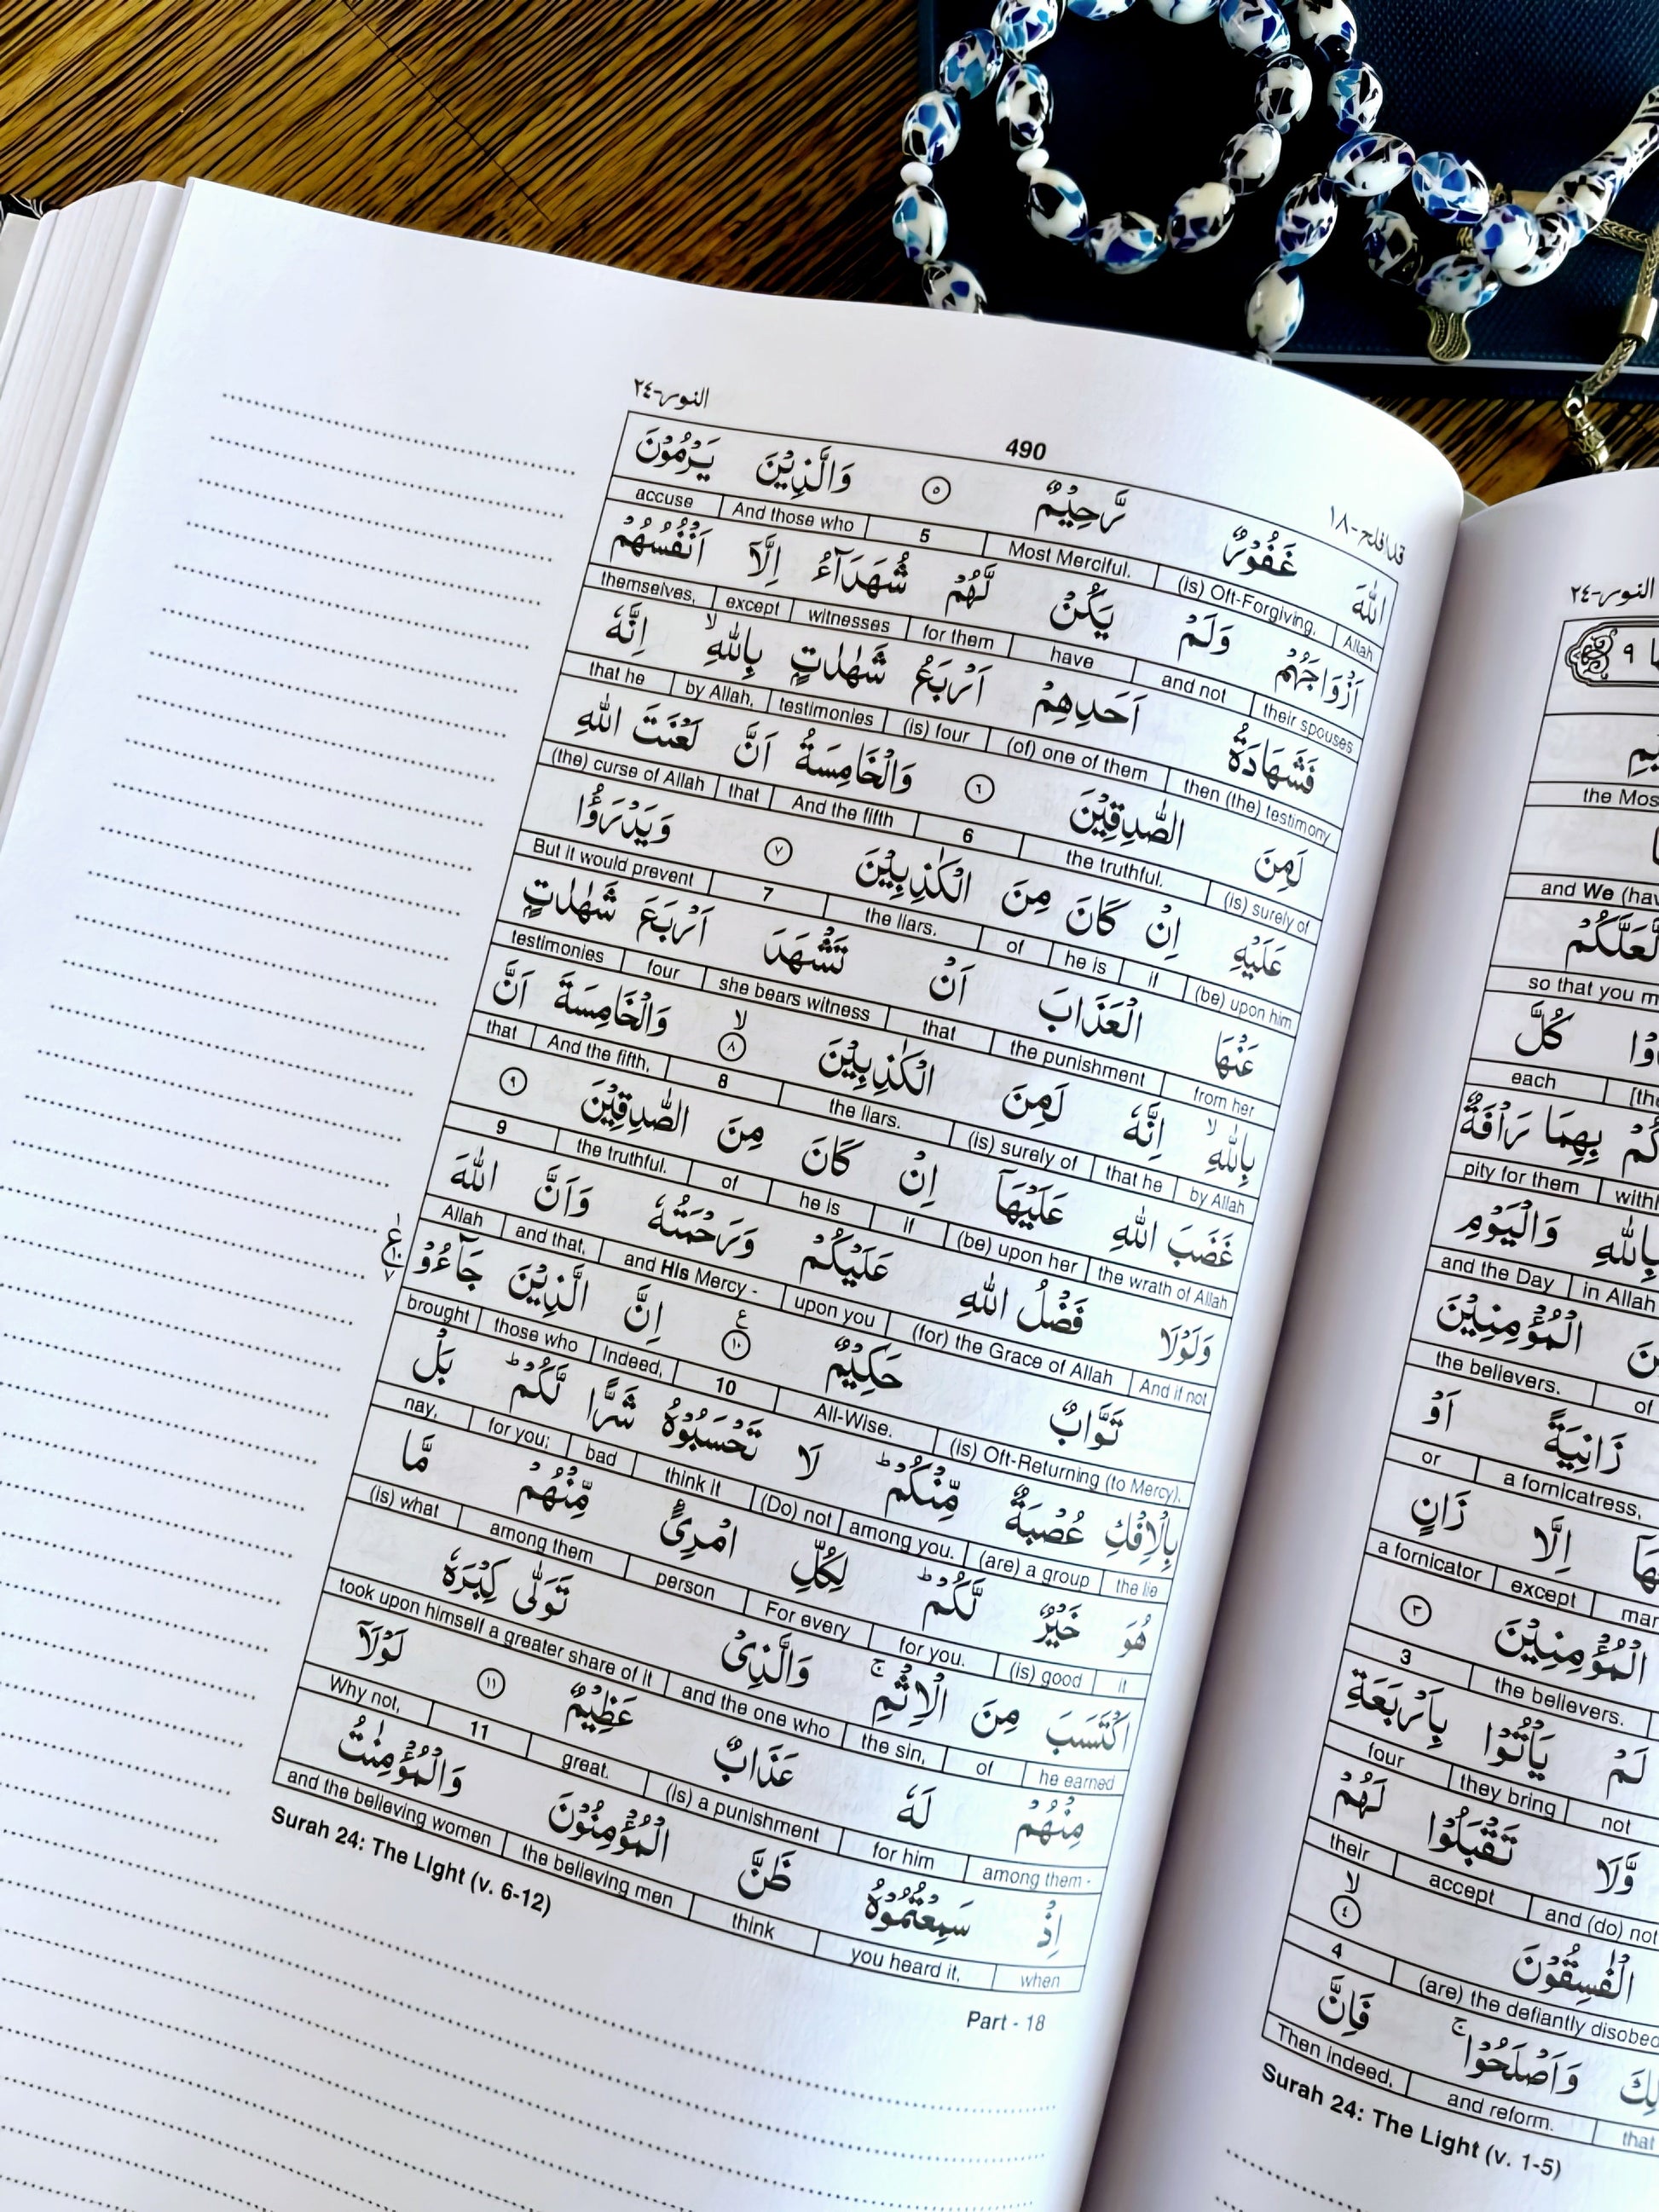 النور-٢٤
490
قد افلح-١٨
اللّٰهَ غَفُوْرٌ رَّحِيْمٌ ٥ وَالَّذِيْنَ يَرْمُوْنَ
Allah (is) Oft-Forgiving, Most Merciful. 5 And those who accuse
اَزْوَاجَهُمْ وَلَمْ يَكُنْ لَّهُمْ شُهَدَآءُ اِلَّآ اَنْفُسُهُمْ
their spouses and not have for them witnesses except themselves,
فَشَهَادَةُ اَحَدِهِمْ اَرْبَعُ شَهٰدٰتٍ بِاللّٰهِ ۙ اِنَّهٗ
then (the) testimony (of) one of them (is) four testimonies by Allah, that he
لَمِنَ الصّٰدِقِيْنَ ٦ وَالْخَامِسَةُ اَنَّ لَعْنَتَ اللّٰهِ
(is) surely of the truthful. 6 And the fifth that (the) curse of Allah
عَلَيْهِ اِنْ كَانَ مِنَ الْكٰذِبِيْنَ ٧ وَيَدْرَؤُا
(be) upon him if he is of the liars. 7 But it would prevent
عَنْهَا الْعَذَابَ اَنْ تَشْهَدَ اَرْبَعَ شَهٰدٰتٍ
from her the punishment that she bears witness four testimonies
بِاللّٰهِ ۙ اِنَّهٗ لَمِنَ الْكٰذِبِيْنَ ٨ ۙ وَالْخَامِسَةَ اَنَّ
by Allah that he (is) surely of the liars. 8 And the fifth, that
غَضَبَ اللّٰهِ عَلَيْهَآ اِنْ كَانَ مِنَ الصّٰدِقِيْنَ ٩
the wrath of Allah (be) upon her if he is of the truthful. 9
وَلَوْلَا فَضْلُ اللّٰهِ عَلَيْكُمْ وَرَحْمَتُهٗ وَاَنَّ اللّٰهَ
And if not (for) the Grace of Allah upon you and His Mercy - and that, Allah
تَوَّابٌ حَكِيْمٌ ١٠ ع اِنَّ الَّذِيْنَ جَآءُوْ
(is) Oft-Returning (to Mercy), All-Wise. 10 Indeed, those who brought
بِالْاِفْكِ عُصْبَةٌ مِّنْكُمْ ؕ لَا تَحْسَبُوْهُ شَرًّا لَّكُمْ ؕ بَلْ
the lie (are) a group among you. (Do) not think it bad for you; nay,
هُوَ خَيْرٌ لَّكُمْ ؕ لِكُلِّ امْرِئٍ مِّنْهُمْ مَّا
it (is) good for you. For every person among them (is) what
اكْتَسَبَ مِنَ الْاِثْمِ ۚ وَالَّذِىْ تَوَلّٰى كِبْرَهٗ
he earned of the sin, and the one who took upon himself a greater share of it
مِنْهُمْ لَهٗ عَذَابٌ عَظِيْمٌ ١١ لَوْلَآ
among them - for him (is) a punishment great. 11 Why not,
اِذْ سَمِعْتُمُوْهُ ظَنَّ الْمُؤْمِنُوْنَ وَالْمُؤْمِنٰتُ
when you heard it, think the believing men and the believing women
Surah 24: The Light (v. 6-12)
Part - 18
النور-٢٤
the Mos
and We (hav
لَّعَلَّكُمْ
so that you m
كُلَّ
each
بِهِمَا رَاْفَةٌ
pity for them
بِاللّٰهِ وَالْيَوْمِ
in Allah and the Day
الْمُؤْمِنِيْنَ
of the believers.
زَانِيَةً اَوْ
a fornicatress, or
اِلَّا زَانٍ
except a fornicator
الْمُؤْمِنِيْنَ ٣
the believers. 3
لَمْ يَاْتُوْا بِاَرْبَعَةِ
not they bring four
وَّلَا تَقْبَلُوْا لَهُمْ
and (do) not accept their
الْفٰسِقُوْنَ ٤ ۙ
(are) the defiantly disobed 4
وَاَصْلَحُوْا ۚ فَاِنَّ
that and reform. Then indeed,
Surah 24: The Light (v. 1-5)